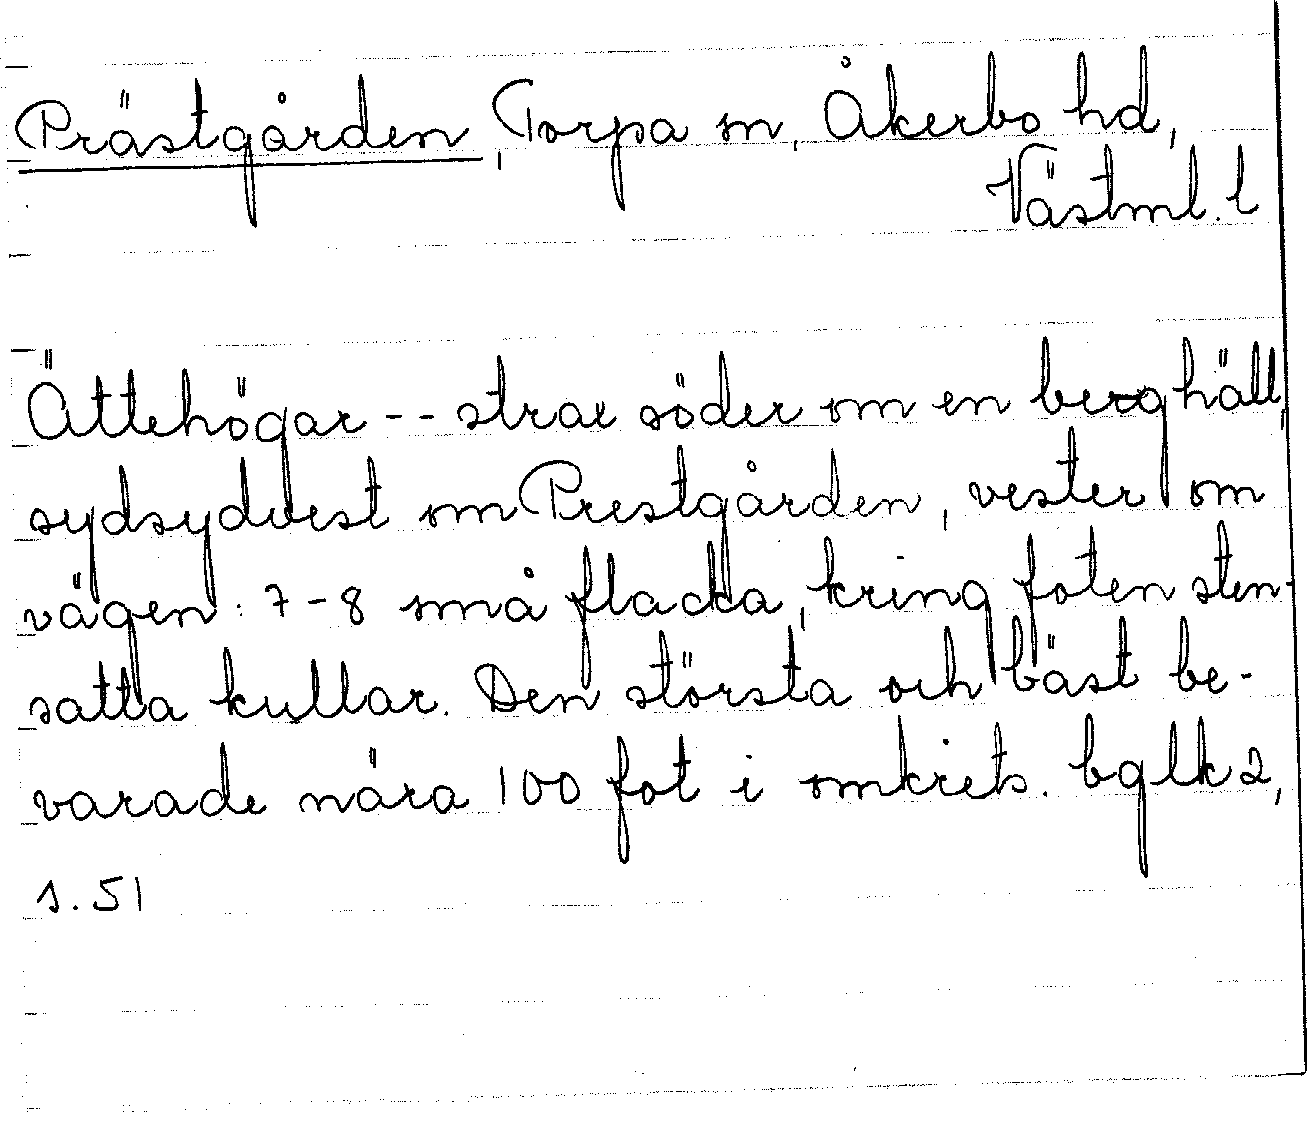 Prästgården, Torpa sn, Åkerbo hd,
Västml. l
Ättehögar -- strax söder om en berghäll,
sydsydvest om Prestgården, vester om
vägen: 7-8 små flacka, kring foten sten-
satta kullar. Den största och bäst be-
varade nära 100 fot i omkrets. bglk 2,
s. 51